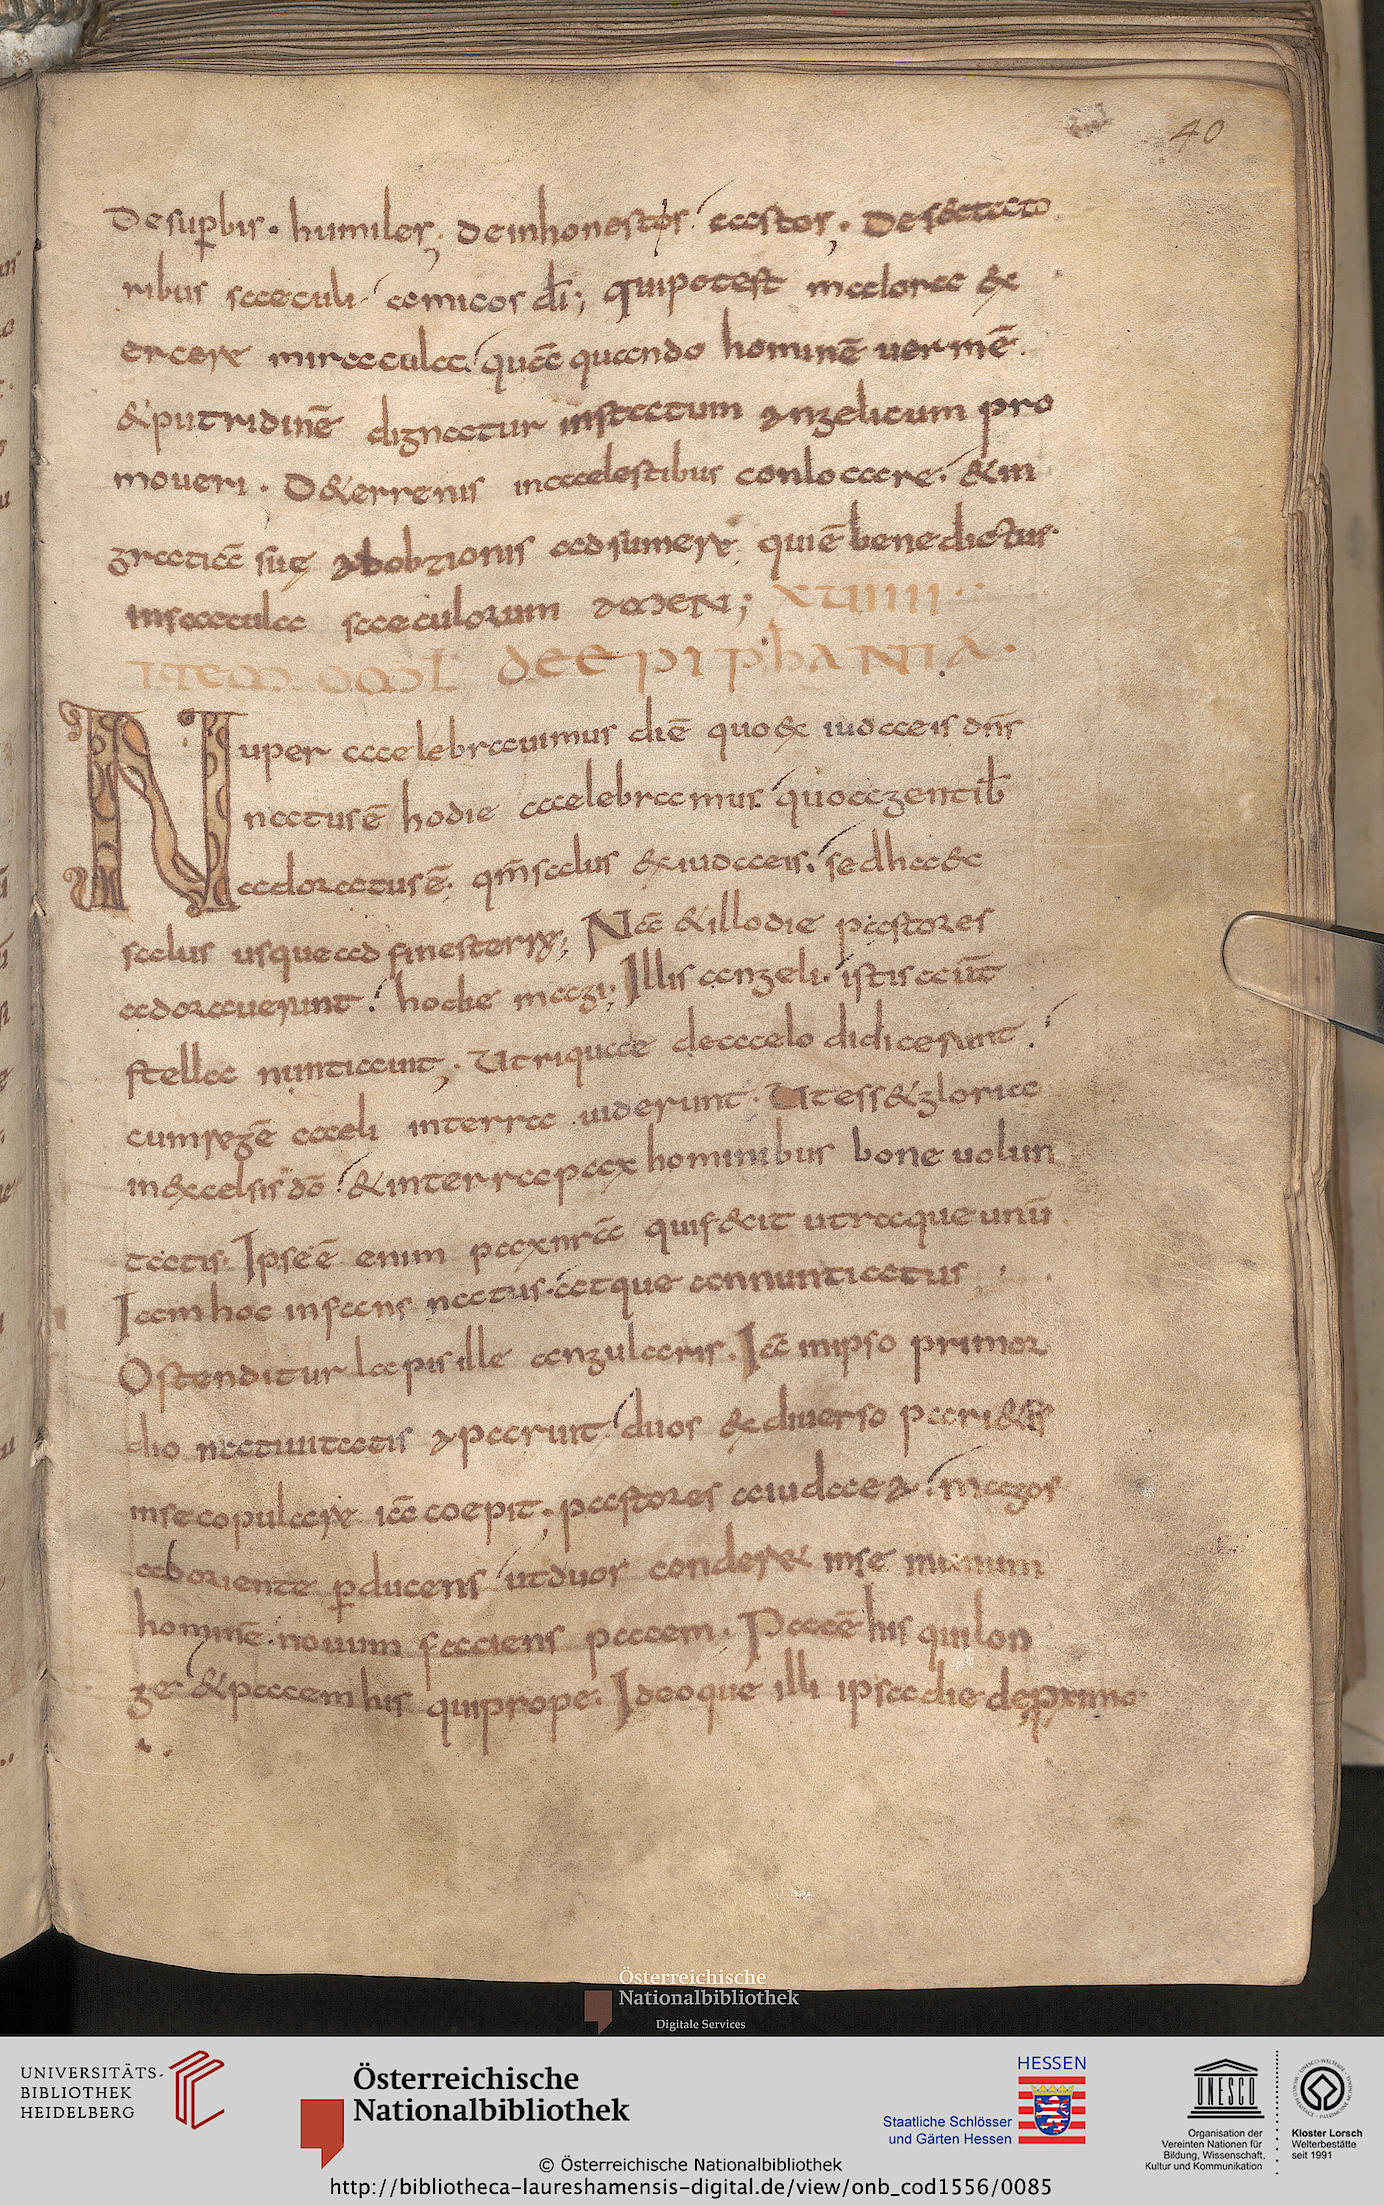 40
Desuꝑbis · humiles; deinhonestos castos; Desectato
ribus saeculi amicos dī; quipotest maiora &
ercere miracula. quā quando hominē uermē
&putridinē dignatur instatum angelicum pro
moueri · D&errenis incaelestibus conlocare. &in
gratiā suę adobtionis adsumere, quiē benedictus
insaecula saeculorum AMEN; XUIIII
ITEM OML DE EPIPHANIA ·
Nuper caelebrauimus diē quo&x iudaeis dn̄s
natusē hodie caelebramus quoagentib;
adoratusē. qm̄ salus &xiudaeis. sedhaec
salus usquead finesterrę; Nā &illodie pastores
adorauerunt. hodie magi; Illis angeli. istis aūt
stella nuntiauit; Utriquae decaelo didicerunt.
cumregē caeli interra uiderunt. Utess& gloria
in&xcelsis dō &interra pax hominibus bone uolun
tatis. Ipseē enim pax nrā quif&cit utraque unū
Iam hoc infans natus. atque annuntiatus
Ostenditur lapis ille angularis. Iā inipso primor
dio natiuitatis apparuit. duos &xdiuerso pari&es
insecopulare iā coepit, pastores aiudaea. magos
aboriente ꝑducens utduos conder& inse inunum
hominē nouum faciens pacem. Pacē his quilon
ge &pacem his quiprope. Ideoque illi ipsa die deproximo
Österreichische
Nationalbibliothek
Digitale Services
UNIVERSITÄTS-
BIBLIOTHEK
HEIDELBERG
Österreichische
Nationalbibliothek
HESSEN
Staatliche Schlösser
und Gärten Hessen
UNESCO
Organisation der
Vereinten Nationen für
Bildung, Wissenschaft,
Kultur und Kommunikation
Kloster Lorsch
Welterbestätte
seit 1991
© Österreichische Nationalbibliothek
http://bibliotheca-laureshamensis-digital.de/view/onb_cod1556/0085